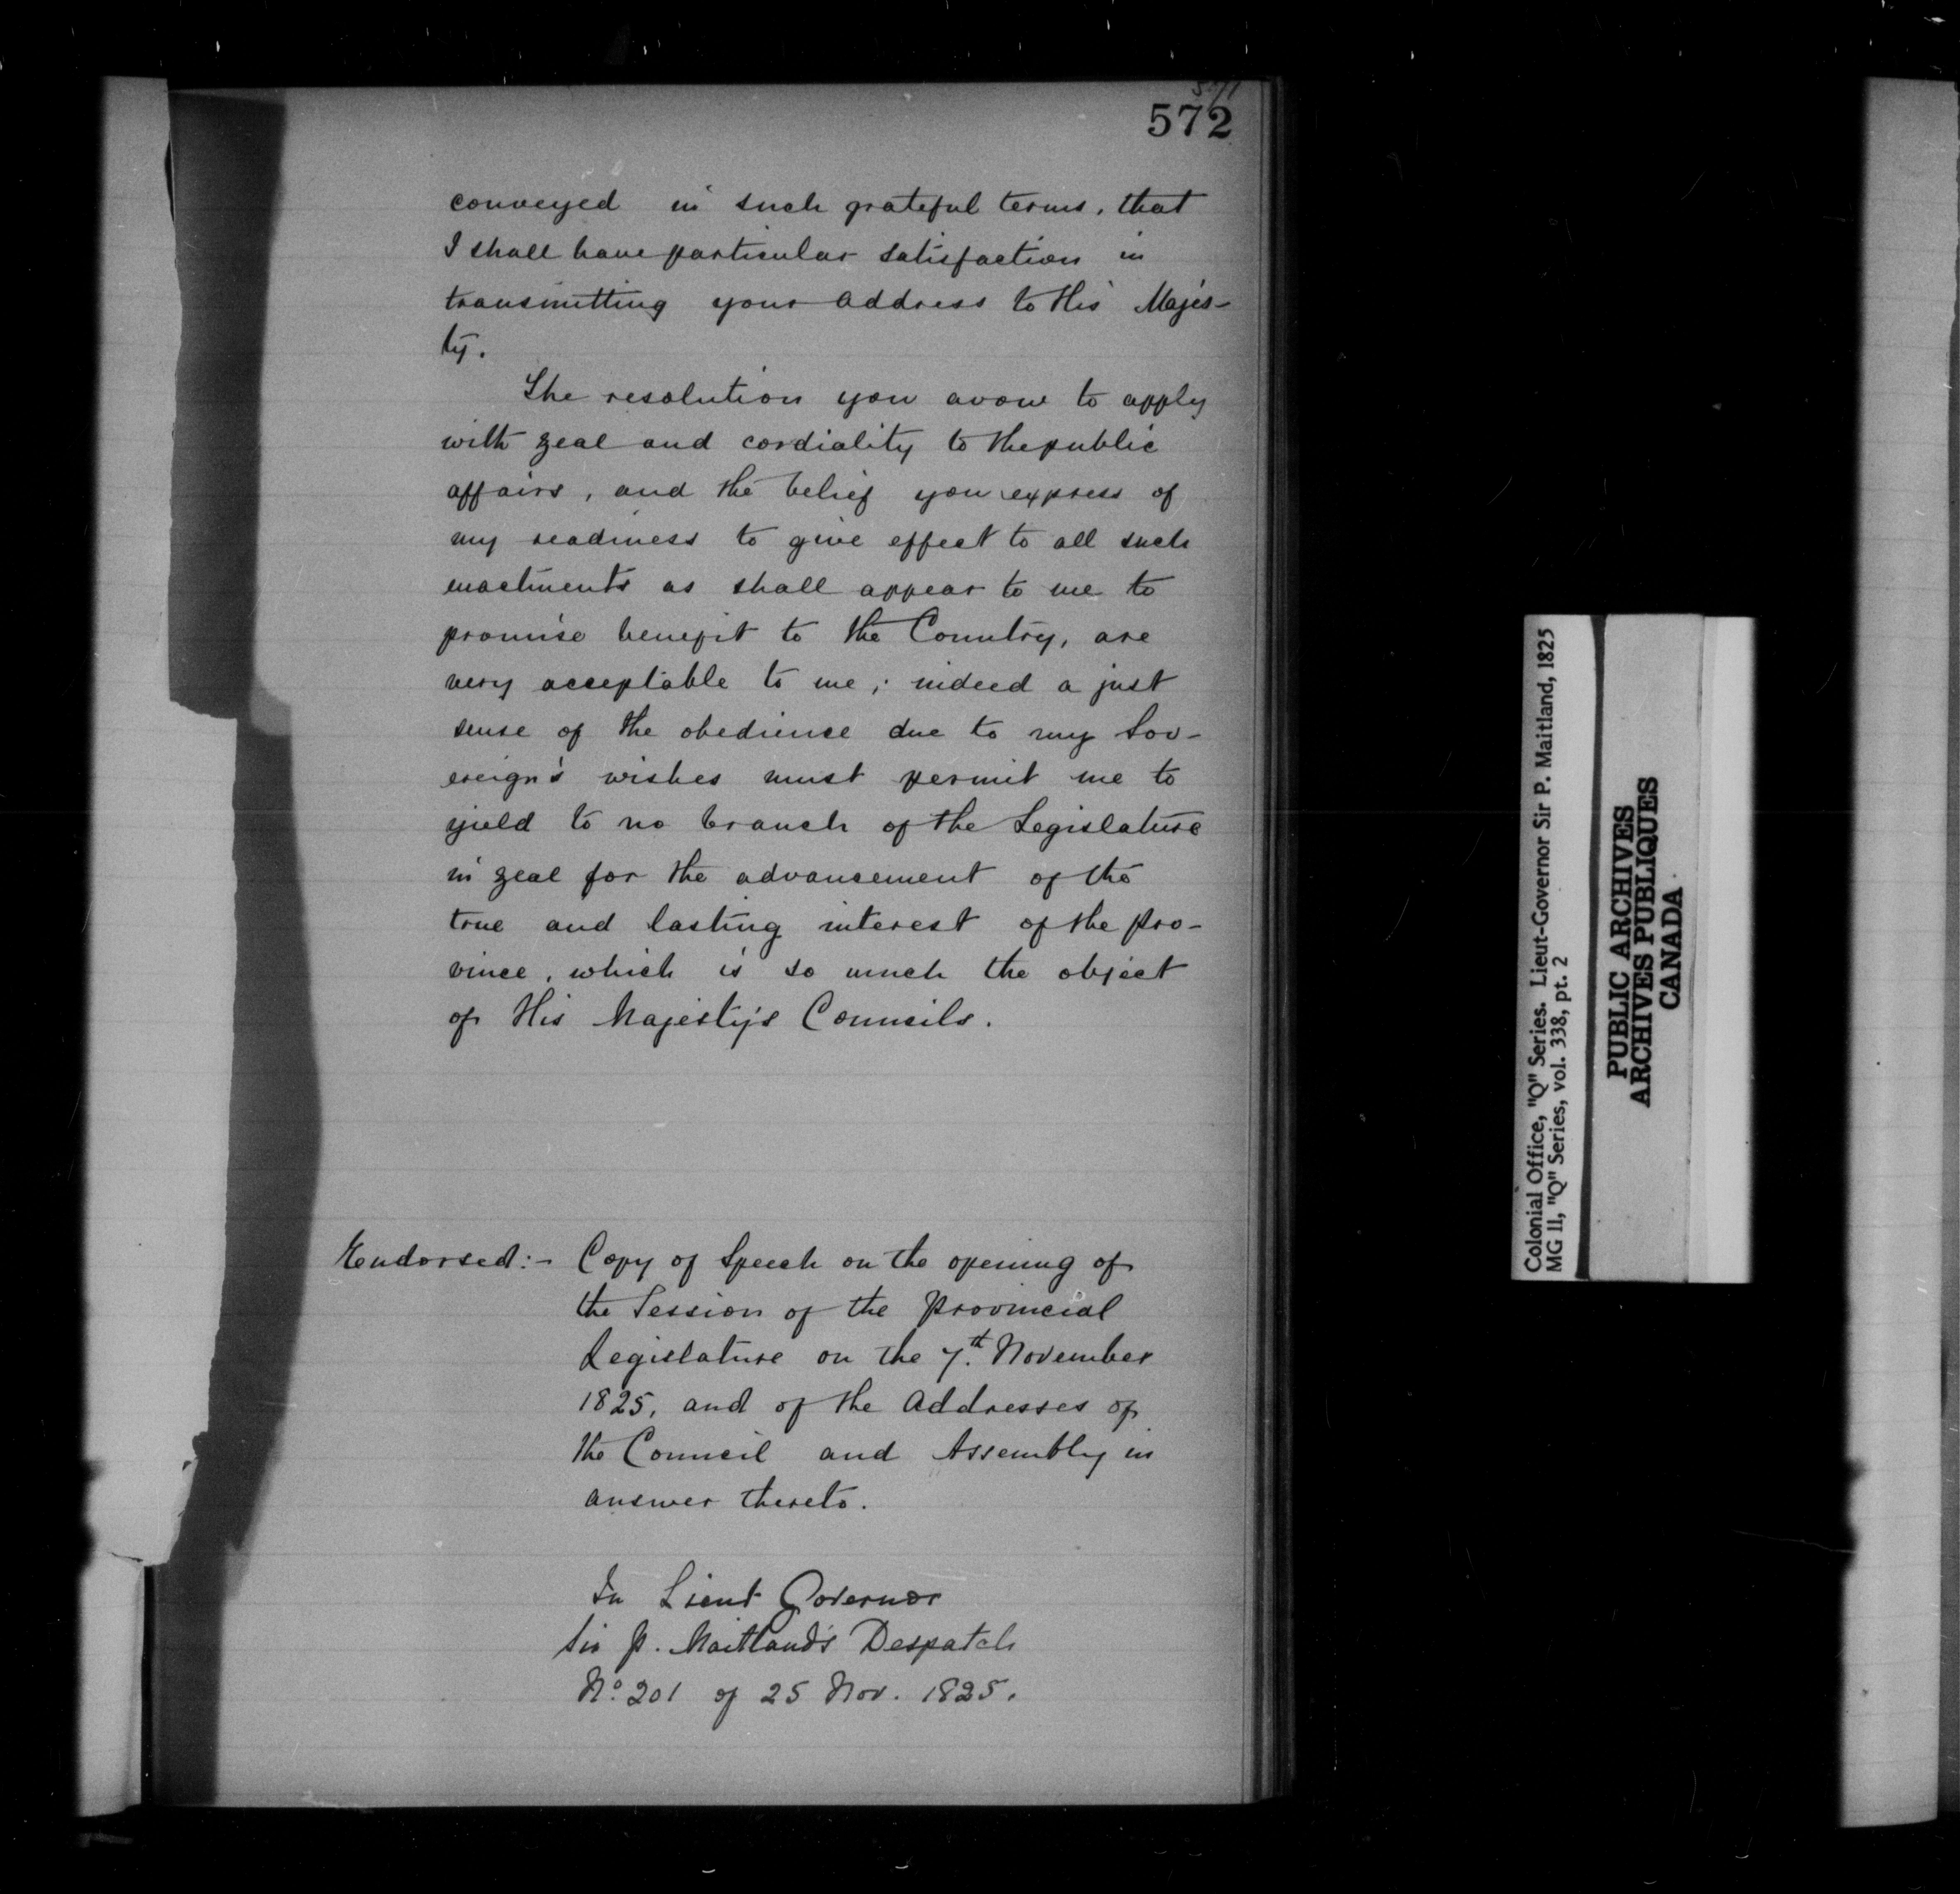 572
conveyed in such grateful terms, that
I shall have particular satisfaction in
transmitting your address to His Majes-
ty.
The resolution you avow to apply
with zeal and cordiality to the public
affairs, and the belief you express of
my readiness to give effect to all such
enactments as shall appear to me to
promise benefit to the Country, are
very acceptable to me; indeed a just
sense of the obedience due to my Sov-
ereign's wishes must permit me to
yield to no branch of the Legislature
in zeal for the advancement of the
true and lasting interest of the Pro-
vince, which is so much the object
of His Majesty's Councils.
Endorsed:- Copy of Speech on the opening of
the Session of the Provincial
Legislature on the 7th November
1825, and of the Addresses of
the Council and Assembly in
answer thereto.
In Lieut Governor
Sir P. Maitland's Despatch
No. 201 of 25 Nov. 1825.
Colonial Office, "Q" Series. Lieut-Governor Sir P. Maitland, 1825
MG 11, "Q" Series, vol. 338, pt. 2
PUBLIC ARCHIVES
ARCHIVES PUBLIQUES
CANADA